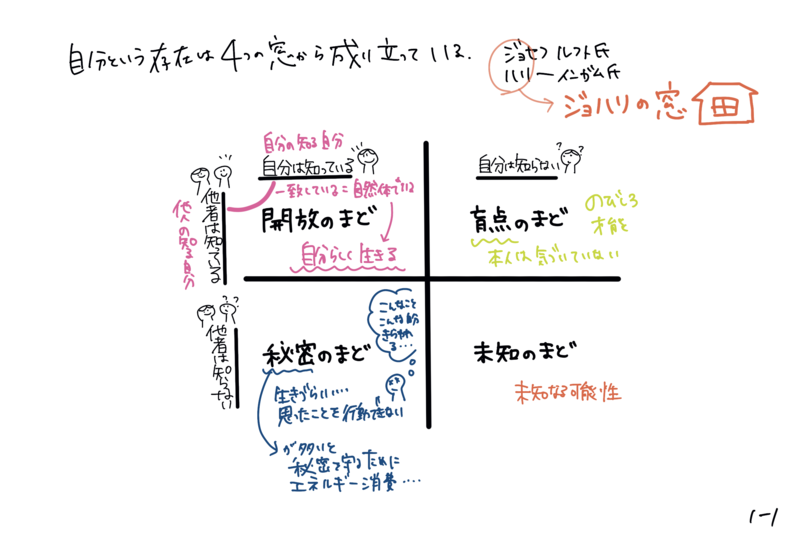 自分という存在は4つの窓から成り立っている.
ジョセフ ルフト氏
ハリーインガム氏
ジョハリの窓
自分の知る自分
自分は知っている
自分は知らない
一致している=自然体でいる
開放のまど
自分らしく生きる
盲点のまど
のびしろ
才能を
本人は気づいていない
他者は知っている
他人の知る自分
他者は知らない
秘密のまど
こんなこと
こんな自分
きらわれ
る...
生きづらい....
思ったことを行動できない
が多いと
秘密を守るために
エネルギー消費....
未知のまど
未知なる可能性
1-1